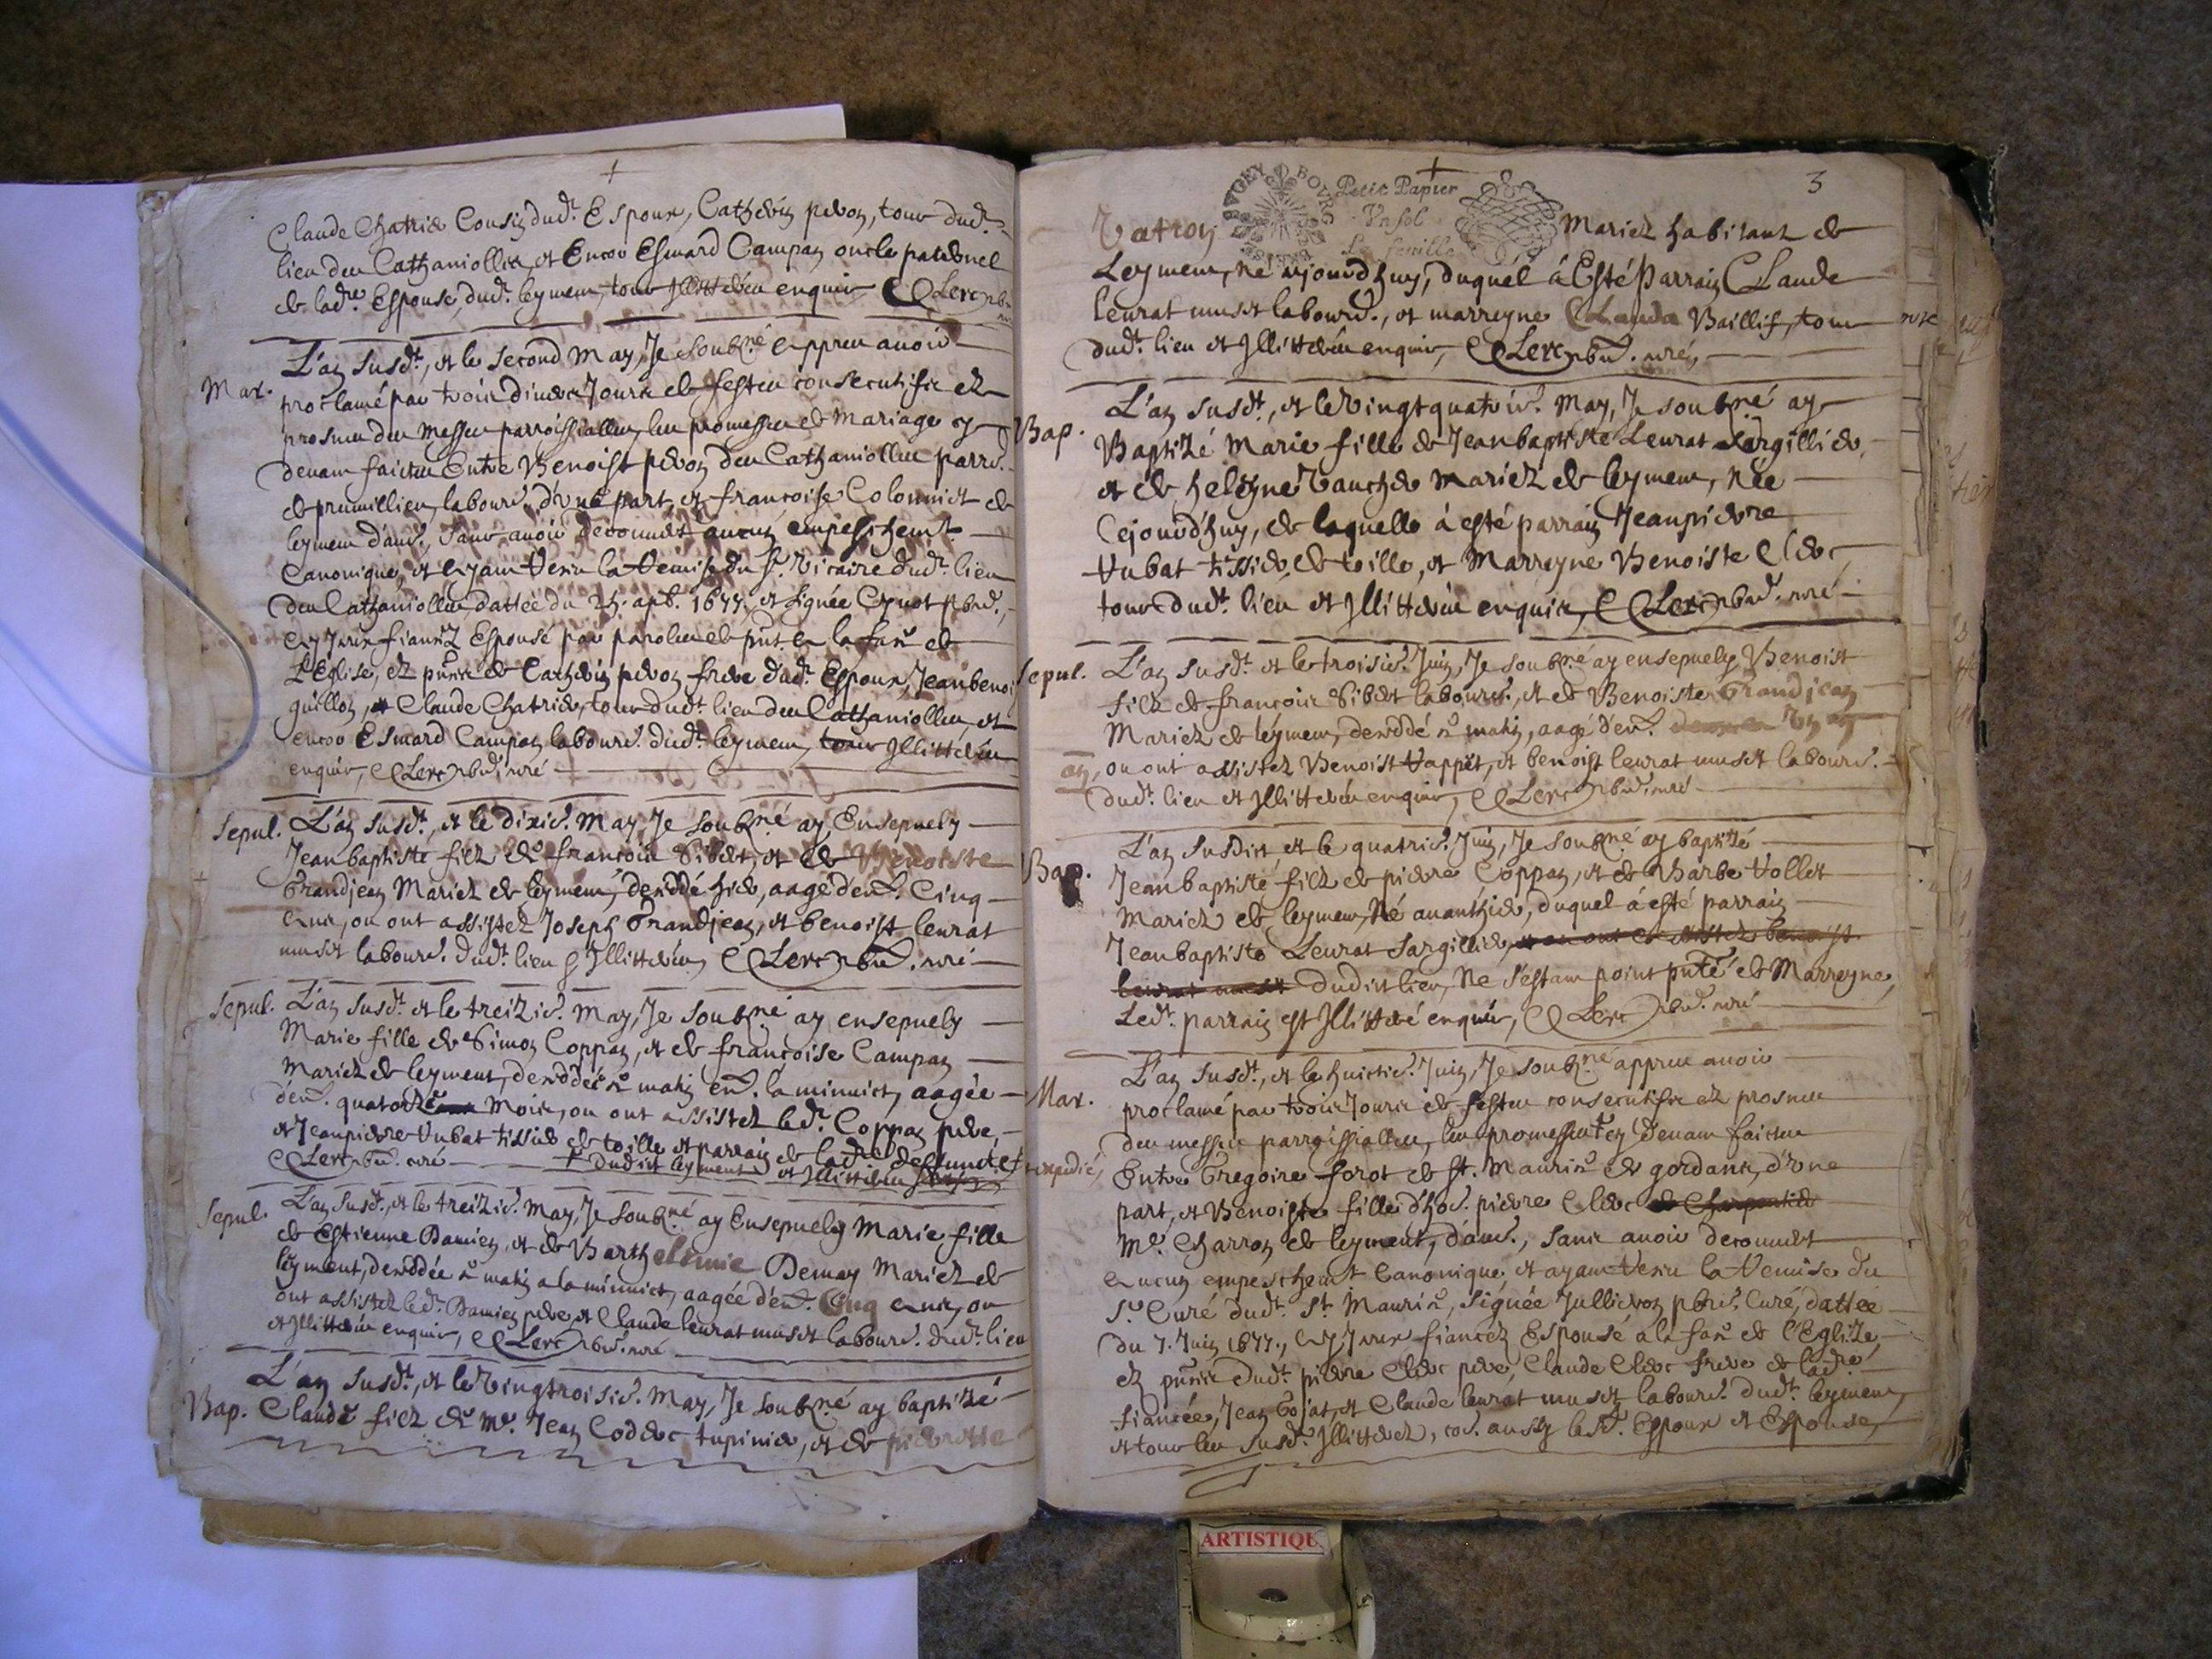 +
Claude Chatrie Cousin dud.t Espoux, Catherin peron, tous dud.t
lieu des Cathaniolles, et encor Esmard Campan oncle paternel
de lad.te Espouse, dud.t leyment, tous Illitterés enquis CLerc
L'an susd.t, et le second May, Je soubz.né appres avoir
Mar.
proclamé par trois divers Jours de festes consecutifs ez
prosnes des Messes parroissialles, les promesses de Mariage cy
devant faictes Entre Benoist peron des Cathaniolles parr.
de prumillieu labour.r d'une part, et francoise Colonniet de
leyment d'au.e, sans avoir decouvert aucun empeschem.t
Canonique, et ayant veu la remise du S.r Vicaire dud.t lieu
des Cathaniolles, dattée du apb. 1677, et signée Cynot pb.re,
les fiancez Espousé par parolles de pnt. en la face de
L'Eglise, ez pnce de Catherin peron frere dud.t Espoux, Jean benoi
guillon, et Claude Chatrie, tous dud.t lieu des Cathaniolles, et
encor Esmard Campan labour.r dud.t leyment, tous Illitterés
enquis, CLerc pb.re curé
Sepul.
L'an susd.t, et le dixie. May, Je soubz.né ay Ensepvely
Jean baptiste filz de francois Sibert, et de Benoiste
Grandjean Mariez de leyment, decedé hier, aagé d'env. Cinq
ans, ou ont assistez Joseph Grandjean, et benoist leurat
muset labour.r dud.t lieu Illitterés, CLerc pb.re curé
Sepul.
L'an susd.t et le treizie. May, Je soubz.né ay ensepvely
Marie fille de Simon Coppan, et de francoise Campan
Mariez de leyment, decedée ce matin env. la minuict, aagée
d'env. quatorze Mois, ou ont assistez led.t Coppan pere,
et Jeanpierre Vubat tissier de toille et parrain de lad.te deffuncte
CLerc pb.re curé + dudict leyment et Illitterés
Sepul.
L'an susd.t, et le treizie. May, Je soubz.né ay Ensepvely Marie fille
de Estienne Damien, et de Barthelemie Demay Mariez de
leyment, decedée ce matin a la minuict, aagée d'env. Cinq ans, ou
ont assistez led.t Damien pere, et Claude leurat muset labour.r dud.t lieu
et Illitterés enquis, CLerc pb.re curé
L'an susd.t, et le vingtroisie. May, Je soubz.né ay baptizé
Bap.
Claude filz de M.e Jean Coderc tupinier, et de pierrette
+
3
BVGEY BOVRG
Petit Papier
Vn sol
La feuille
Vatron Mariez habitant de
Leyment, né aujourd'huy, duquel à Esté parrain Claude
leurat muset labour.r, et marreyne Clauda Baillif, tous
dud.t lieu et Illitterés enquis, CLerc pb.re curé
L'an susd.t, et le vingtquatrie. May, Je soubz.né ay
Bap.
Baptizé Marie fille de Jeanbaptiste Leurat Sargillier,
et de heleyne Vaucher Mariez de leyment, née
Cejourd'huy, de laquelle à esté parrain Jeanpierre
Vubat tissier de toille, et Marreyne Benoiste Clerc
tous dud.t lieu et Illitterés enquis, CLerc pb.re curé
Sepul.
L'an susd.t et le troisie. Juin, Je soubz.né ay ensepvely Benoist
filz de francois Sibert labour.r, et de Benoiste Grandjean
Mariez de leyment, decedé ce matin, aagé d'env. Vn an
an, ou ont assistez Benoist Vappet, et benoist leurat muset labour.r
dud.t lieu et Illitterés enquis, CLerc pb.re curé
L'an susdict, et le quatrie. Juin, Je soubz.né ay baptizé
Bap.
Jeanbaptiste filz de pierre Coppan, et de Barbe Vollet
Mariez de leyment, Né avanthier, duquel à esté parrain
Jeanbaptiste Leurat Sargillier, et ou ont assistez benoist
leurat muset dudict lieu, Ne s'estant point pnté de Marreyne,
Led.t parrain est Illitteré enquis, CLerc pb.re curé
L'an susd.t, et le huictie. Juin, Je soubz.né appres avoir
Mar.
proclamé par trois Jours de festes consecutifs ez prosnes
des messes parroissialles, les promesses cy devant faictes
expedié,
Entre Gregoire forot de St. Maurice de gordans, d'une
part, et Benoiste fille d'ho. pierre Clerc de Charpentier
M.e Charron de leyment, d'au.e, sans avoir decouvert
aucun empeschem.t Canonique, et ayant veu la remise du
S.r Curé dud.t St. Maurice, signée Jullieron pb.re Curé, dattée
du 7. Juin 1677., les fiancez Espousé à la face de l'Eglize,
ez pnce dud.t pierre Clerc pere, Claude Clerc frere de lad.te
fiancée, Jean Gojat, et Claude leurat muset labour.r dud.t leyment,
et tous les susd.ts Illitterez, co. aussy led.t Espoux et Espouse,
ARTISTIQU